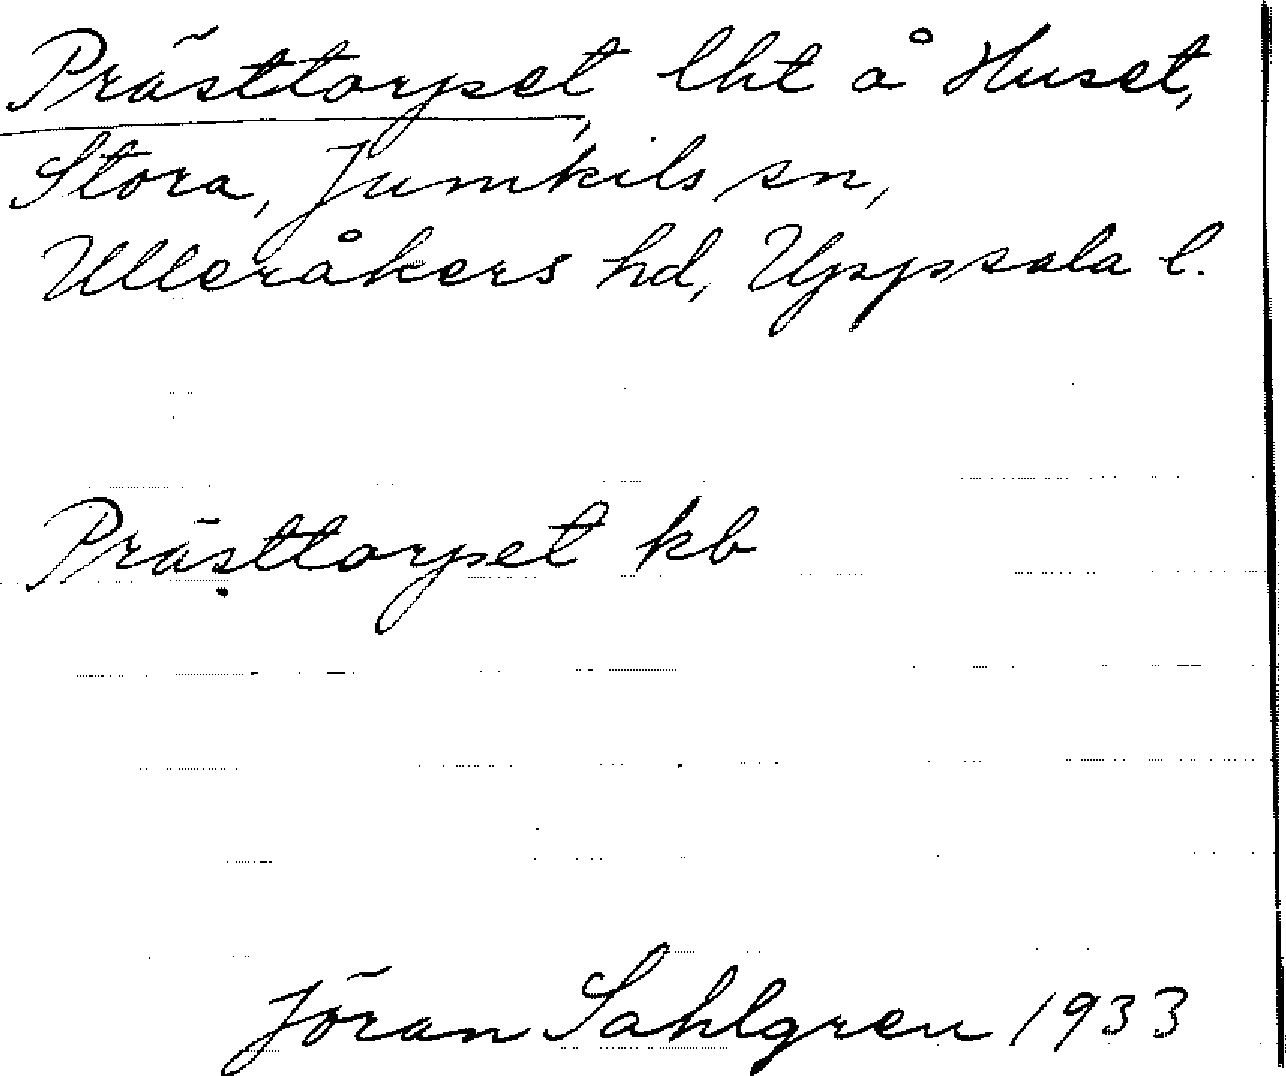 Prästtorpet, lht å Huset,
Stora, Jumkils sn,
Ulleråkers hd, Uppsala l.
Prästtorpet kb
Jöran Sahlgren 1933